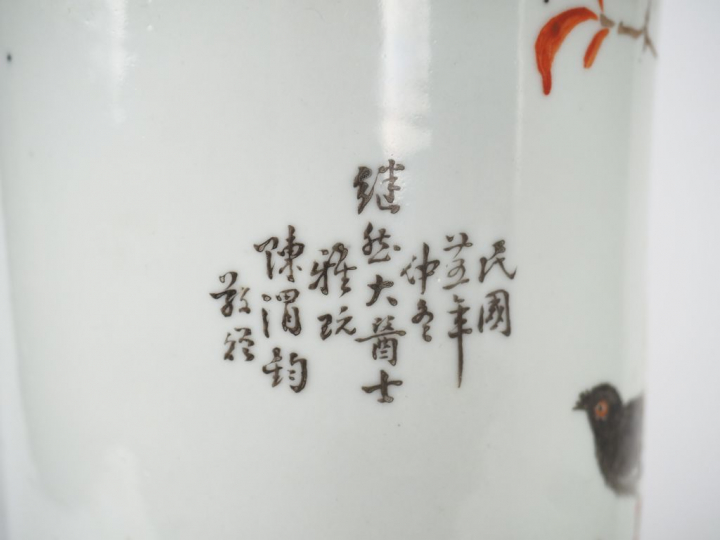 民國
廿五年
仲冬
继然大醫士
雅玩
陳渭鈞
敬贈